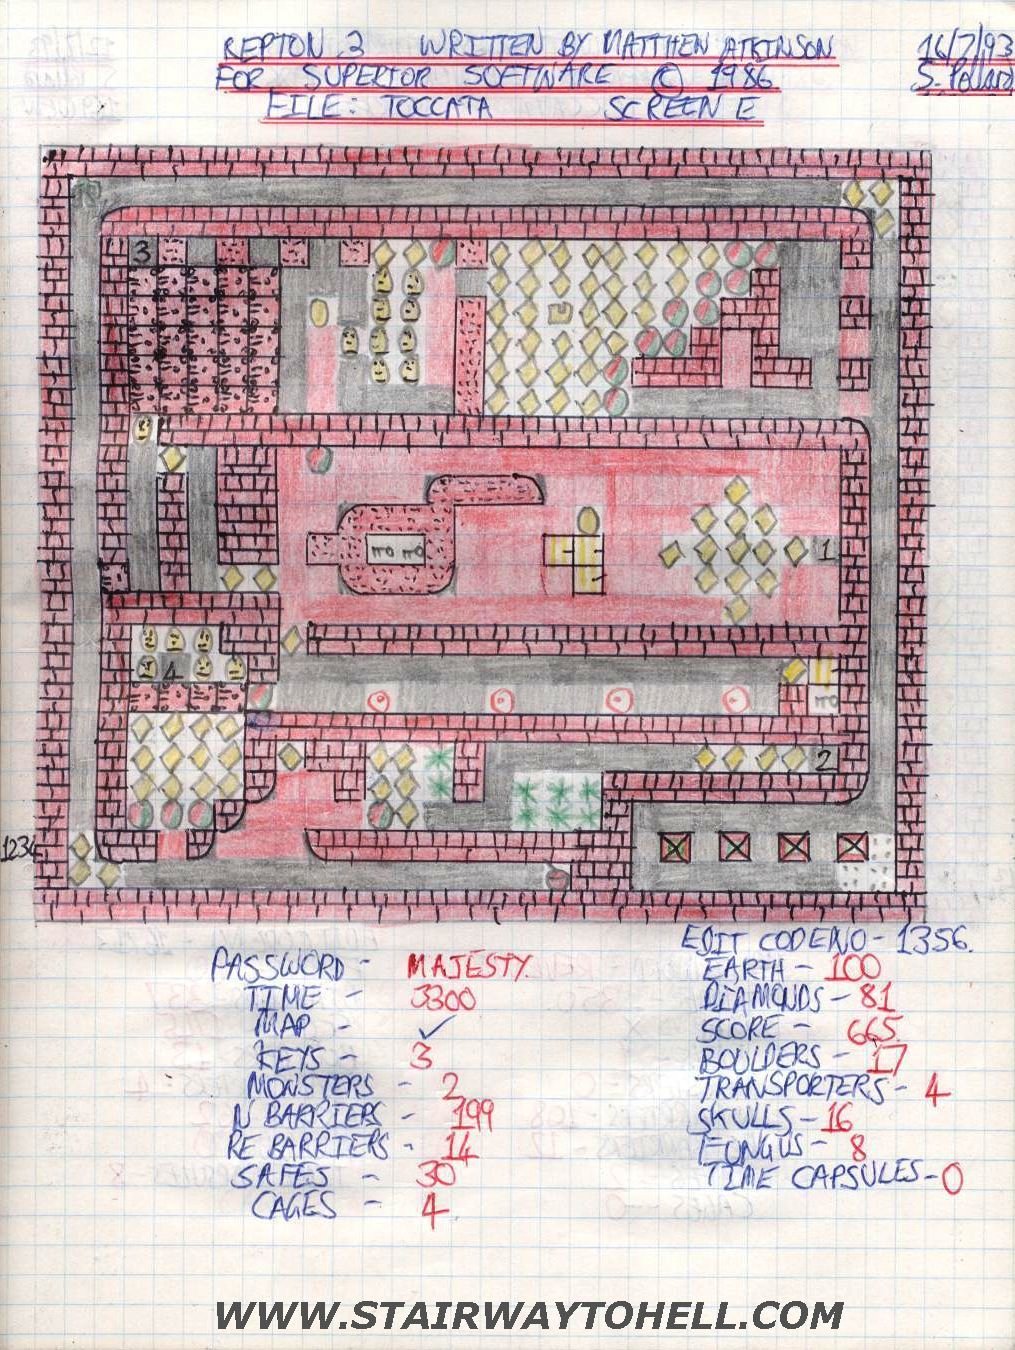 REPTON 3 WRITTEN BY MATTHEW ATKINSON 16/7/93
FOR SUPERIOR SOFTWARE © 1986 S. Pollard
FILE: TOCCATA SCREEN E
3
1
4
2
1234
EDIT CODE NO - 1356.
PASSWORD - MAJESTY.
EARTH - 100
TIME - 3300
DIAMONDS - 81
MAP - ✓
SCORE - 665
KEYS - 3
BOULDERS - 17
MONSTERS - 2
TRANSPORTERS - 4
N BARRIERS - 199
SKULLS - 16
RE BARRIERS - 14
FUNGUS - 8
SAFES - 30
TIME CAPSULES - 0
CAGES - 4
WWW.STAIRWAYTOHELL.COM